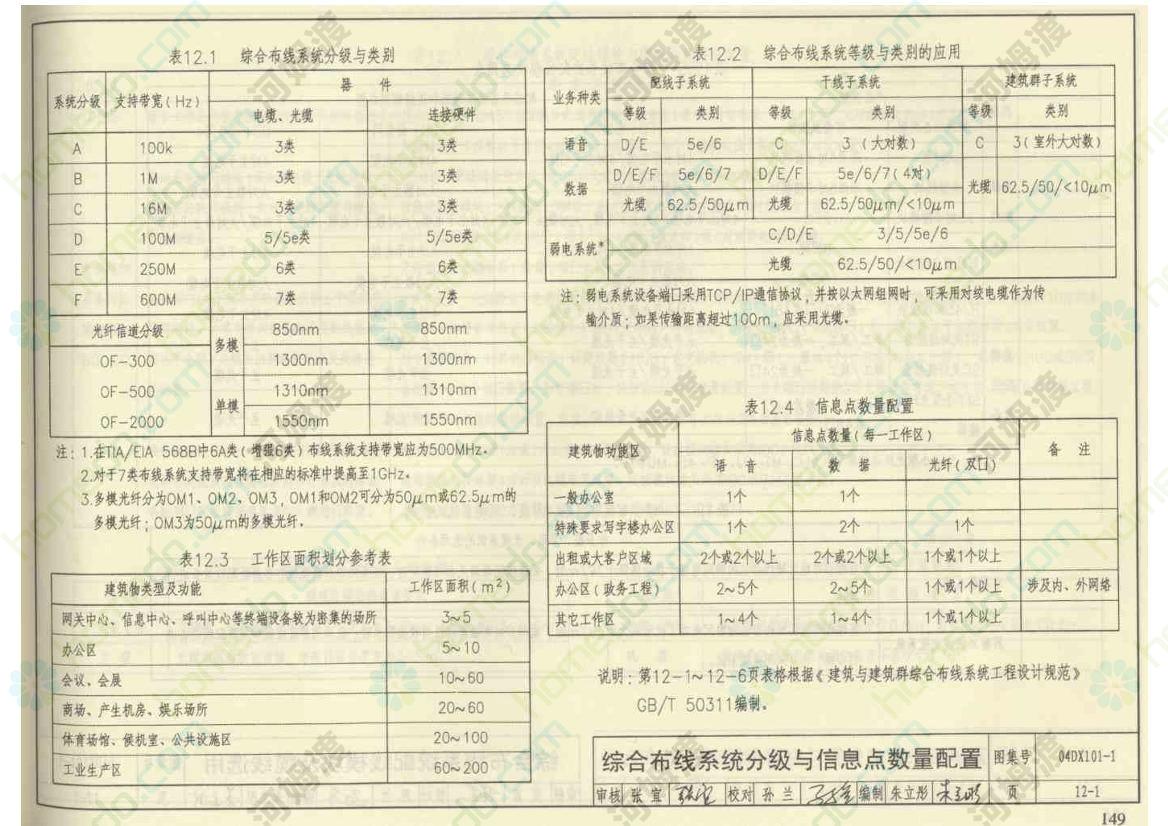 表12.1 综合布线系统分级与类别
系统分级 支持带宽(Hz) 器 件
电缆、光缆 连接硬件
A 100k 3类 3类
B 1M 3类 3类
C 16M 3类 3类
D 100M 5/5e类 5/5e类
E 250M 6类 6类
F 600M 7类 7类
光纤信道分级 多模 850nm 850nm
OF-300 1300nm 1300nm
OF-500 单模 1310nm 1310nm
OF-2000 1550nm 1550nm
注:1.在TIA/EIA 568B中6A类(增强6类)布线系统支持带宽应为500MHz。
2.对于7类布线系统支持带宽将在相应的标准中提高至1GHz。
3.多模光纤分为OM1、OM2、OM3,OM1和OM2可分为50μm或62.5μm的
多模光纤;OM3为50μm的多模光纤。
表12.3 工作区面积划分参考表
建筑物类型及功能 工作区面积(m²)
网关中心、信息中心、呼叫中心等终端设备较为密集的场所 3~5
办公区 5~10
会议、会展 10~60
商场、产生机房、娱乐场所 20~60
体育场馆、候机室、公共设施区 20~100
工业生产区 60~200
表12.2 综合布线系统等级与类别的应用
业务种类 配线子系统 干线子系统 建筑群子系统
等级 类别 等级 类别 等级 类别
语音 D/E 5e/6 C 3(大对数) C 3(室外大对数)
数据 D/E/F 5e/6/7 D/E/F 5e/6/7(4对) 光缆 62.5/50/<10μm
光缆 62.5/50μm 光缆 62.5/50μm/<10μm
弱电系统* C/D/E 3/5/5e/6
光缆 62.5/50/<10μm
注:弱电系统设备端口采用TCP/IP通信协议,并按以太网组网时,可采用对绞电缆作为传
输介质;如果传输距离超过100m,应采用光缆。
表12.4 信息点数量配置
建筑物功能区 信息点数量(每一工作区) 备 注
语 音 数 据 光纤(双口)
一般办公室 1个 1个
特殊要求写字楼办公区 1个 2个 1个
出租或大客户区域 2个或2个以上 2个或2个以上 1个或1个以上
办公区(政务工程) 2~5个 2~5个 1个或1个以上 涉及内、外网络
其它工作区 1~4个 1~4个 1个或1个以上
说明:第12-1~12-6页表格根据《建筑与建筑群综合布线系统工程设计规范》
GB/T 50311编制。
综合布线系统分级与信息点数量配置 图集号 04DX101-1
审核 张宜 校对 孙兰 编制 朱立彤 页 12-1
149
河姆渡
homedo.com